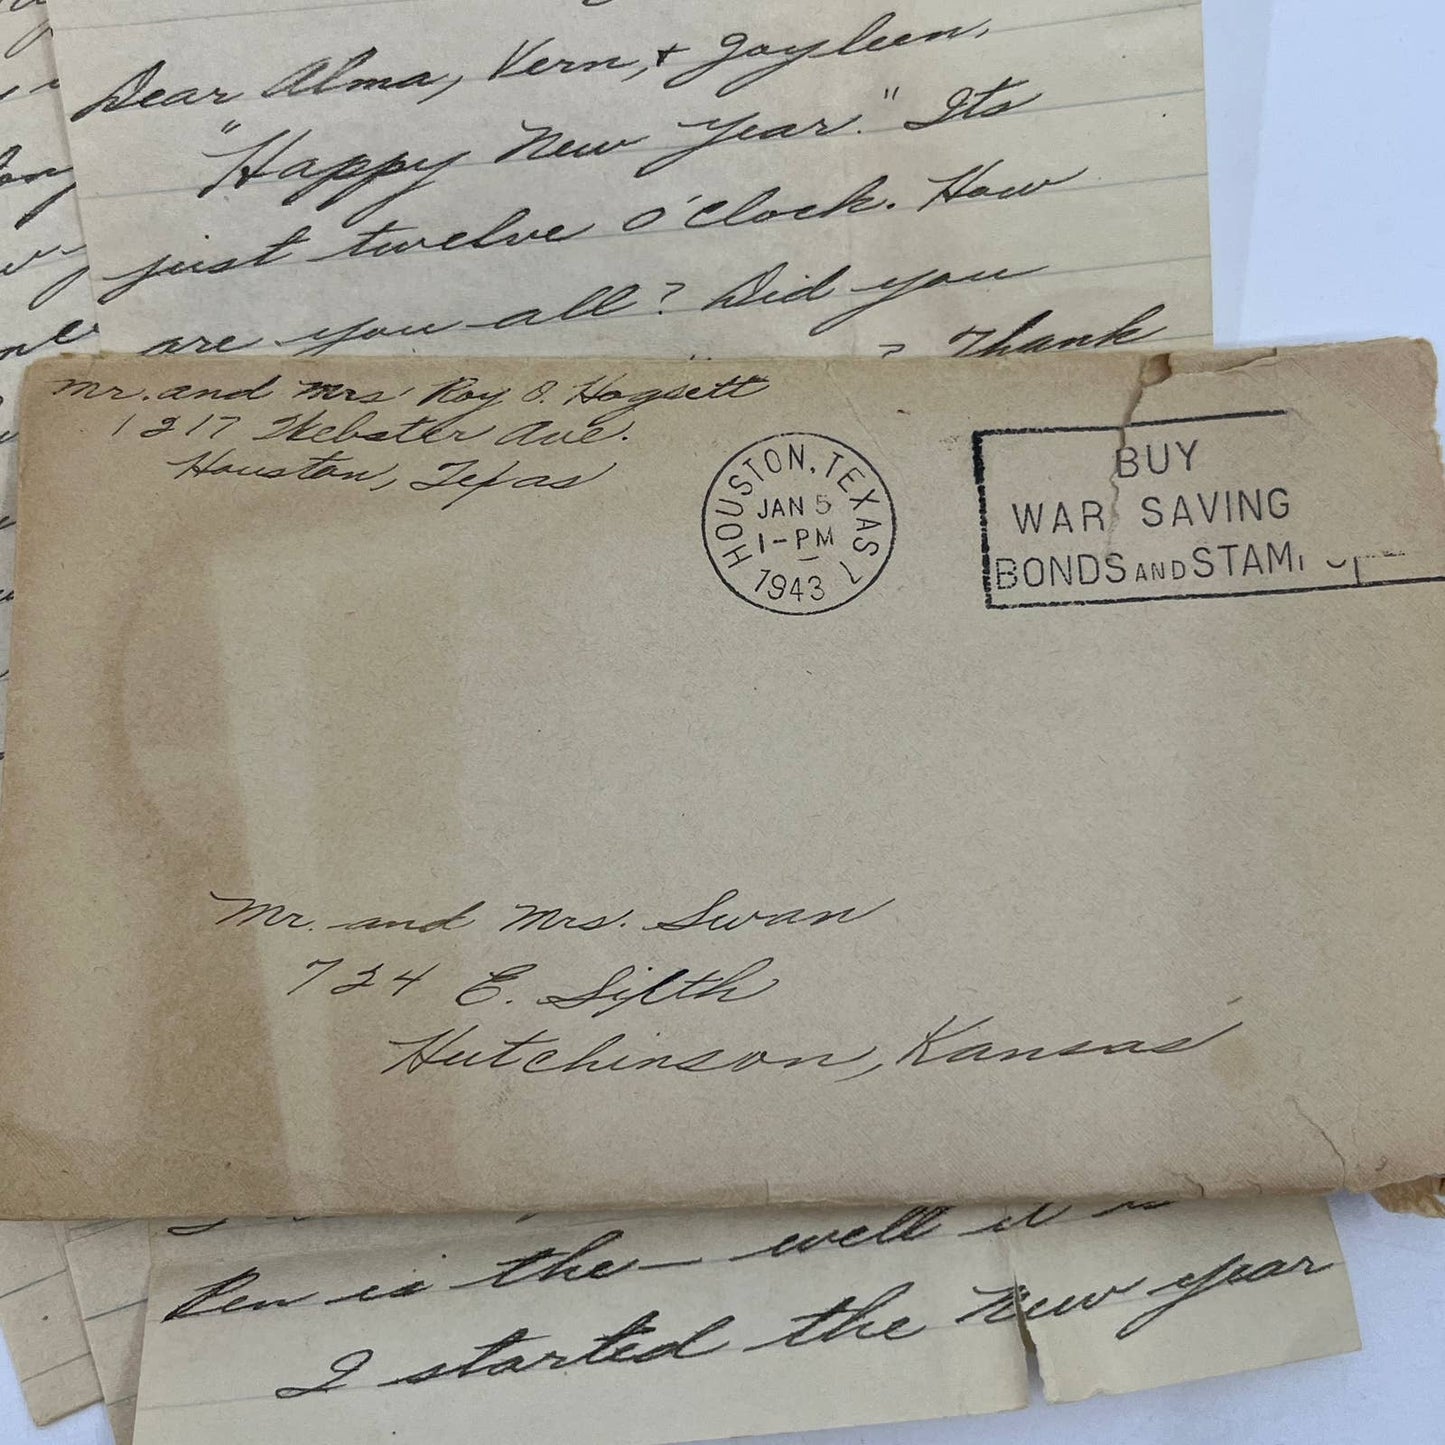 Dear Alma, Vern, + Jayleen,
"Happy New Year." Its
just twelve o'clock. How
are you all? Did you
? Thank
Mr. and Mrs Roy O. Hogsett
1217 Webster Ave.
Houston, Texas
HOUSTON, TEXAS 7
JAN 5
1-PM
1943
BUY
WAR SAVING
BONDS AND STAM
Mr. and Mrs. Swan
724 E. Sixth
Hutchinson, Kansas
Pen is the — well it is
I started the New year